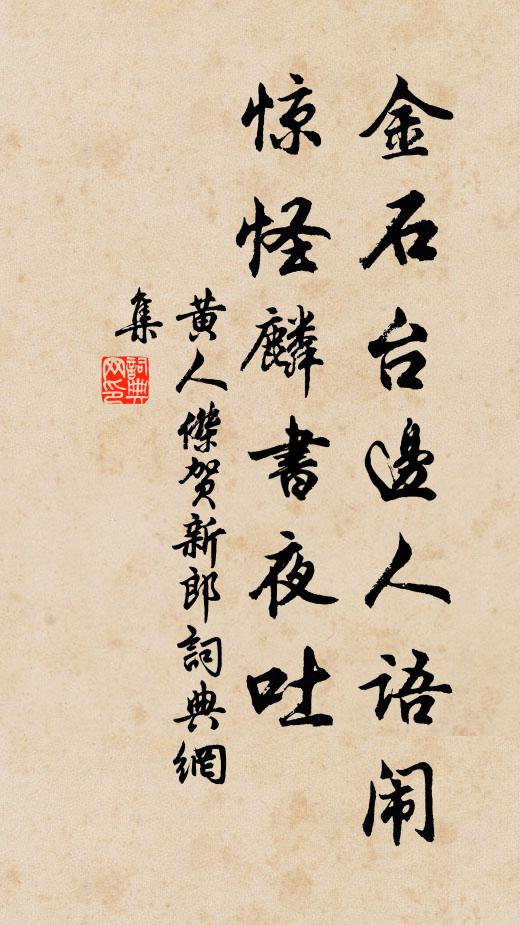 金石台邊人语闹
惊怪麟書夜吐
黄人傑贺新郎詞典網
集
詞典
网印